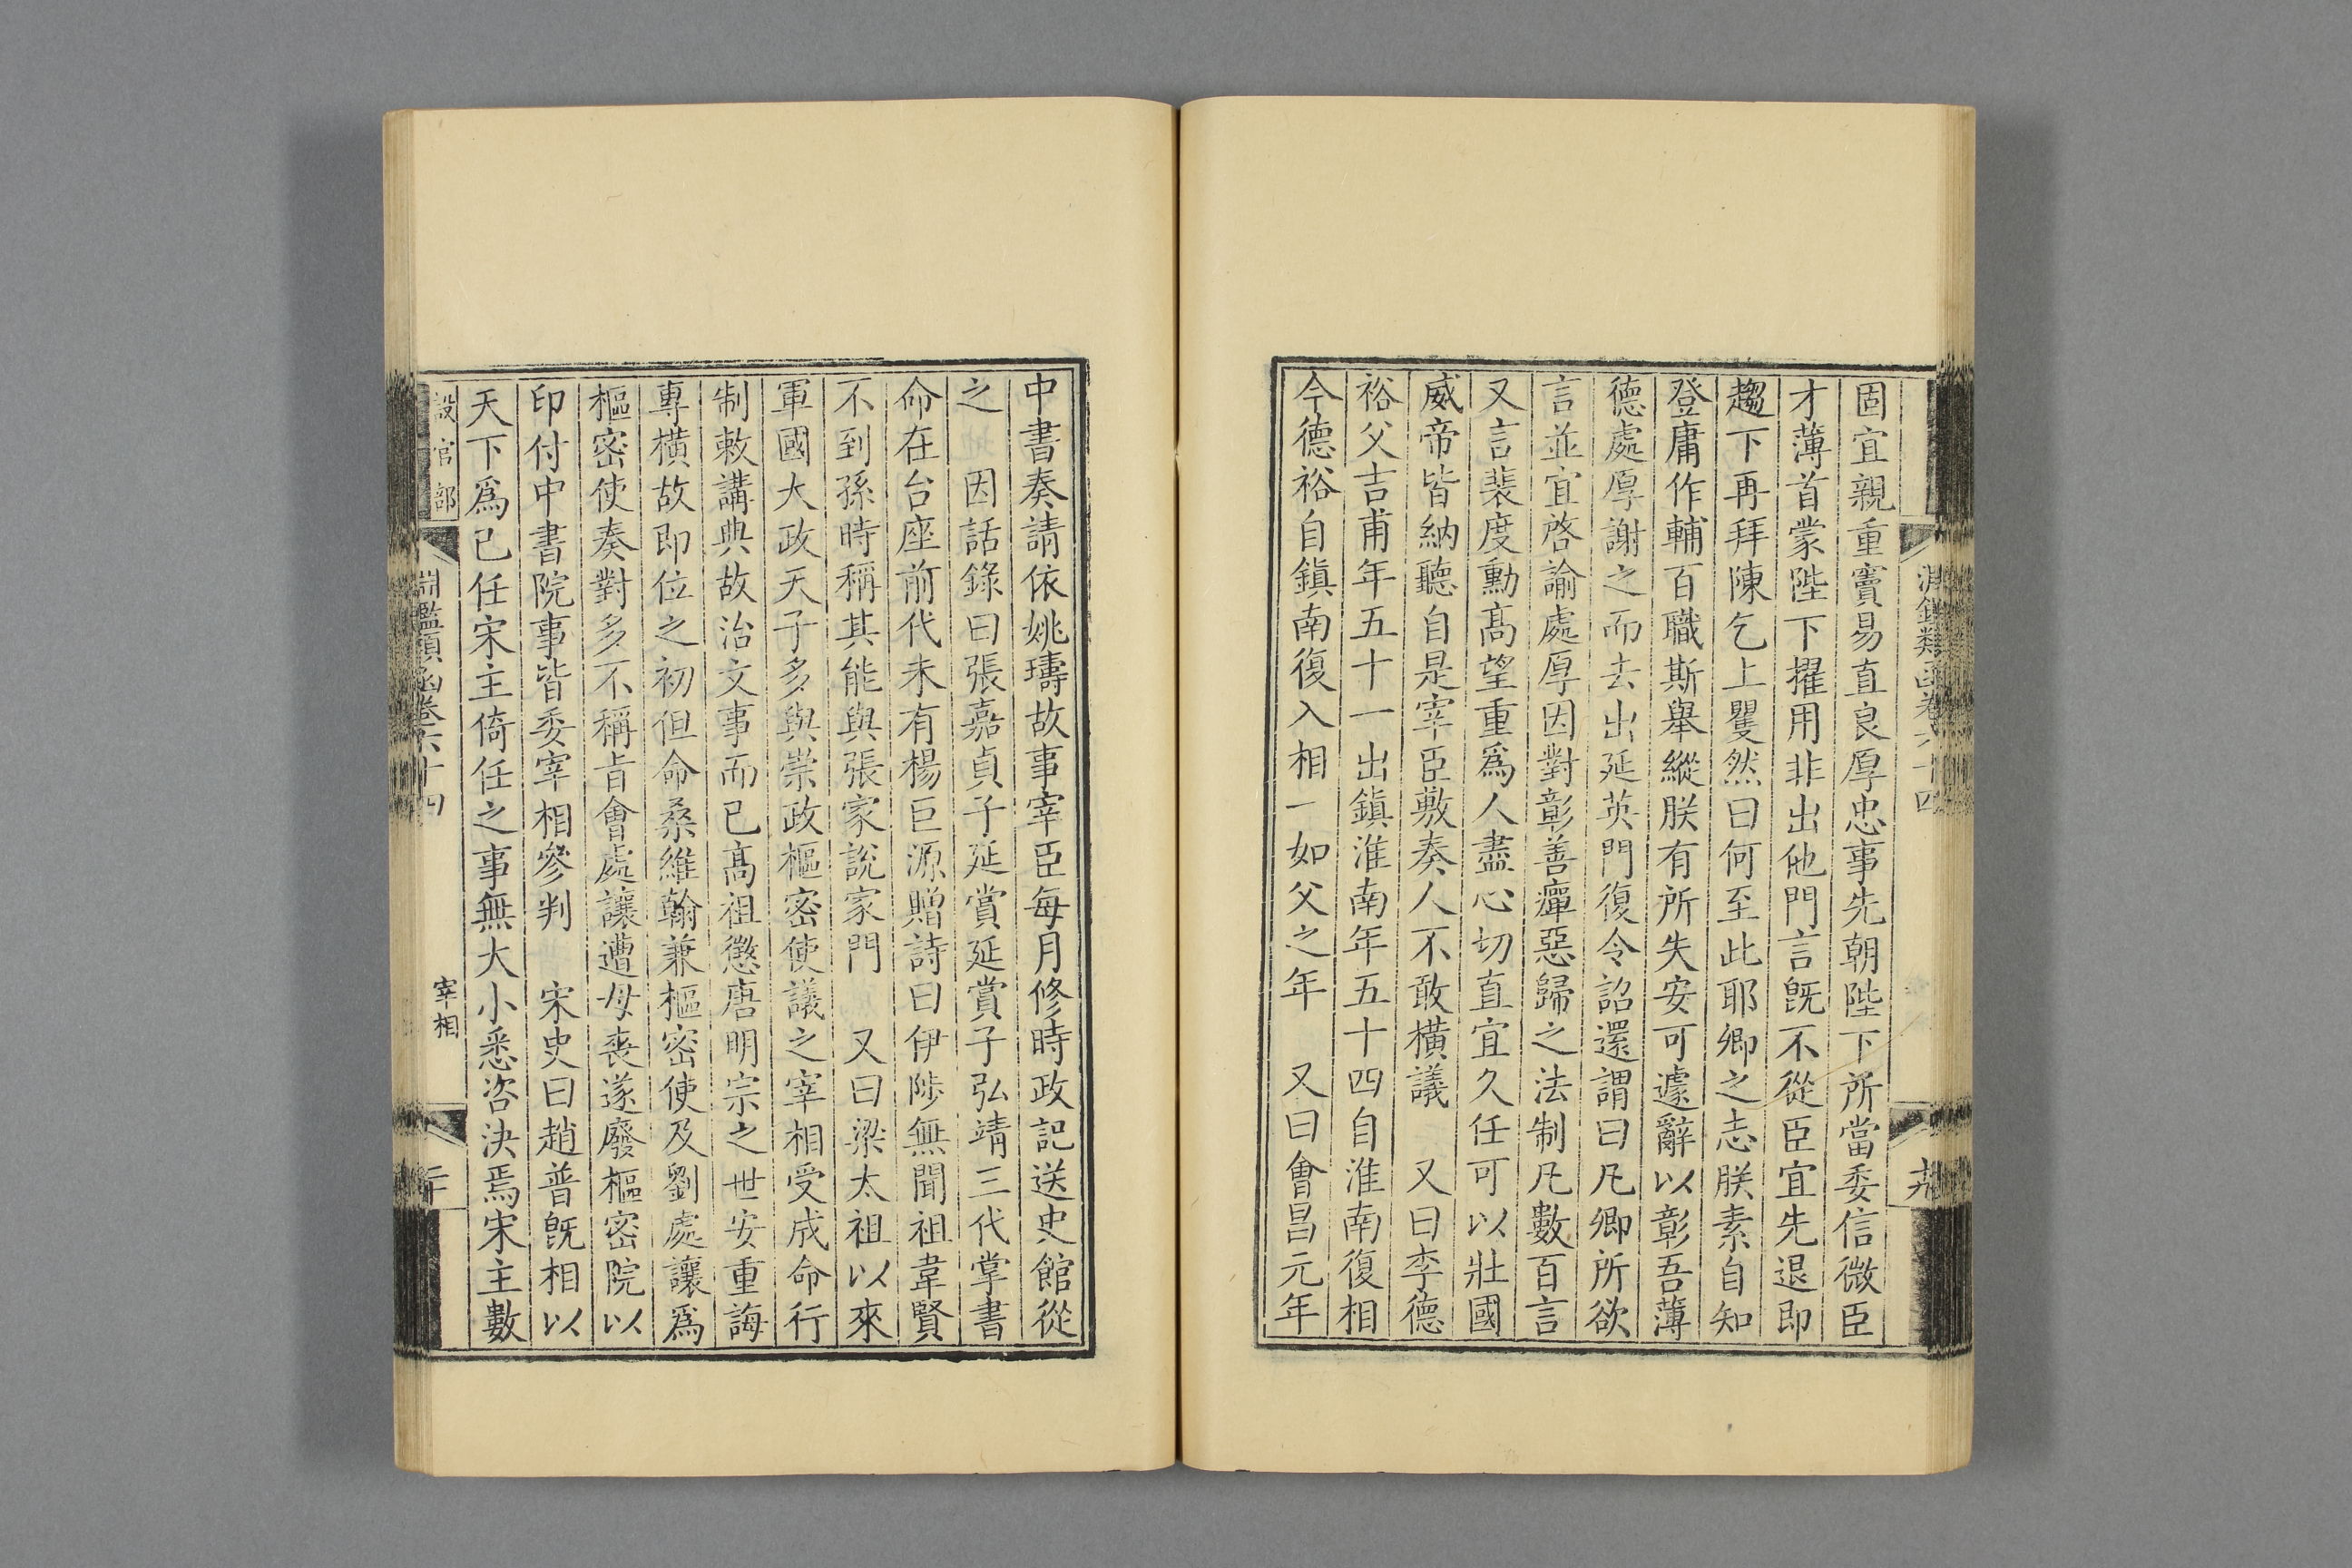 固宜親重竇易直良厚忠事先朝陛下所當委信微臣
才薄首蒙陛下擢用非出他門言旣不從臣宜先退即
趨下再拜陳乞上矍然曰何至此耶卿之志朕素自知
登庸作輔百職斯舉縱朕有所失安可遽辭以彰吾薄
德處厚謝之而去出延英門復令詔還謂曰凡卿所欲
言並宜啓諭處厚因對彰善癉惡歸之法制凡數百言
又言裴度勳髙望重爲人盡心切直宜久任可以壯國
威帝皆納聽自是宰臣敷奏人不敢橫議　又曰李德
裕父吉甫年五十一出鎮淮南年五十四自淮南復相
今德裕自鎮南復入相一如父之年　又曰會昌元年
中書奏請依姚璹故事宰臣每月修時政記送史館從
之　因話錄曰張嘉貞子延賞延賞子弘靖三代掌書
命在台座前代未有楊巨源贈詩曰伊陟無聞祖韋賢
不到孫時稱其能與張家說家門　又曰梁太祖以來
軍國大政天子多與崇政樞密使議之宰相受成命行
制敕講典故治文事而已髙祖懲唐明宗之世安重誨
專橫故即位之初但命桑維翰兼樞密使及劉處讓爲
樞密使奏對多不稱旨會處讓遭母喪遂廢樞密院以
印付中書院事皆委宰相參判　宋史曰趙普旣相以
天下爲已任宋主倚任之事無大小悉咨決焉宋主數
設官部　淵鑑類函卷六十四　宰相